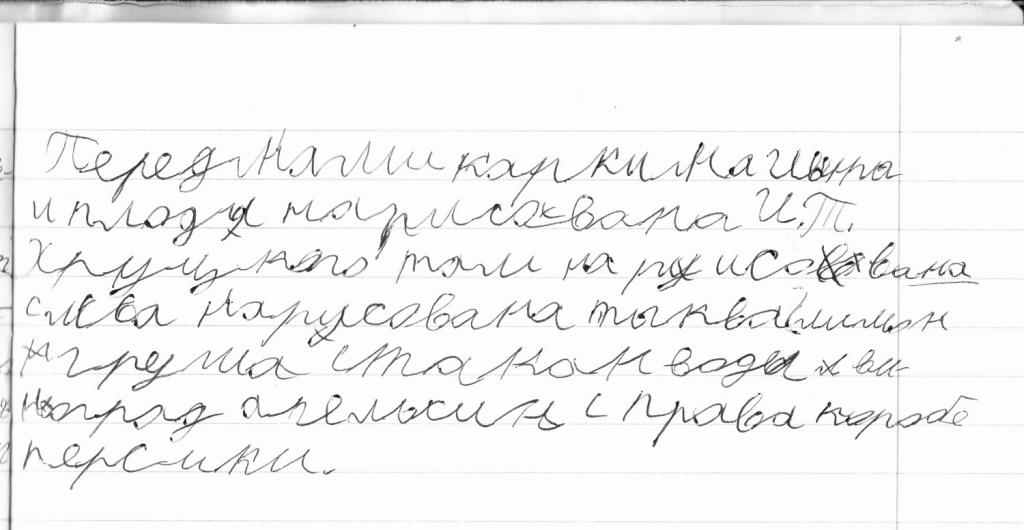 Перед нами каркина Цына
и плоды нарисована И.Т.
Хруцкого там на рисована
слева нарисована тыква лимон
груша стакан воды х ви-
ноград апельсин с права коробе
персики.